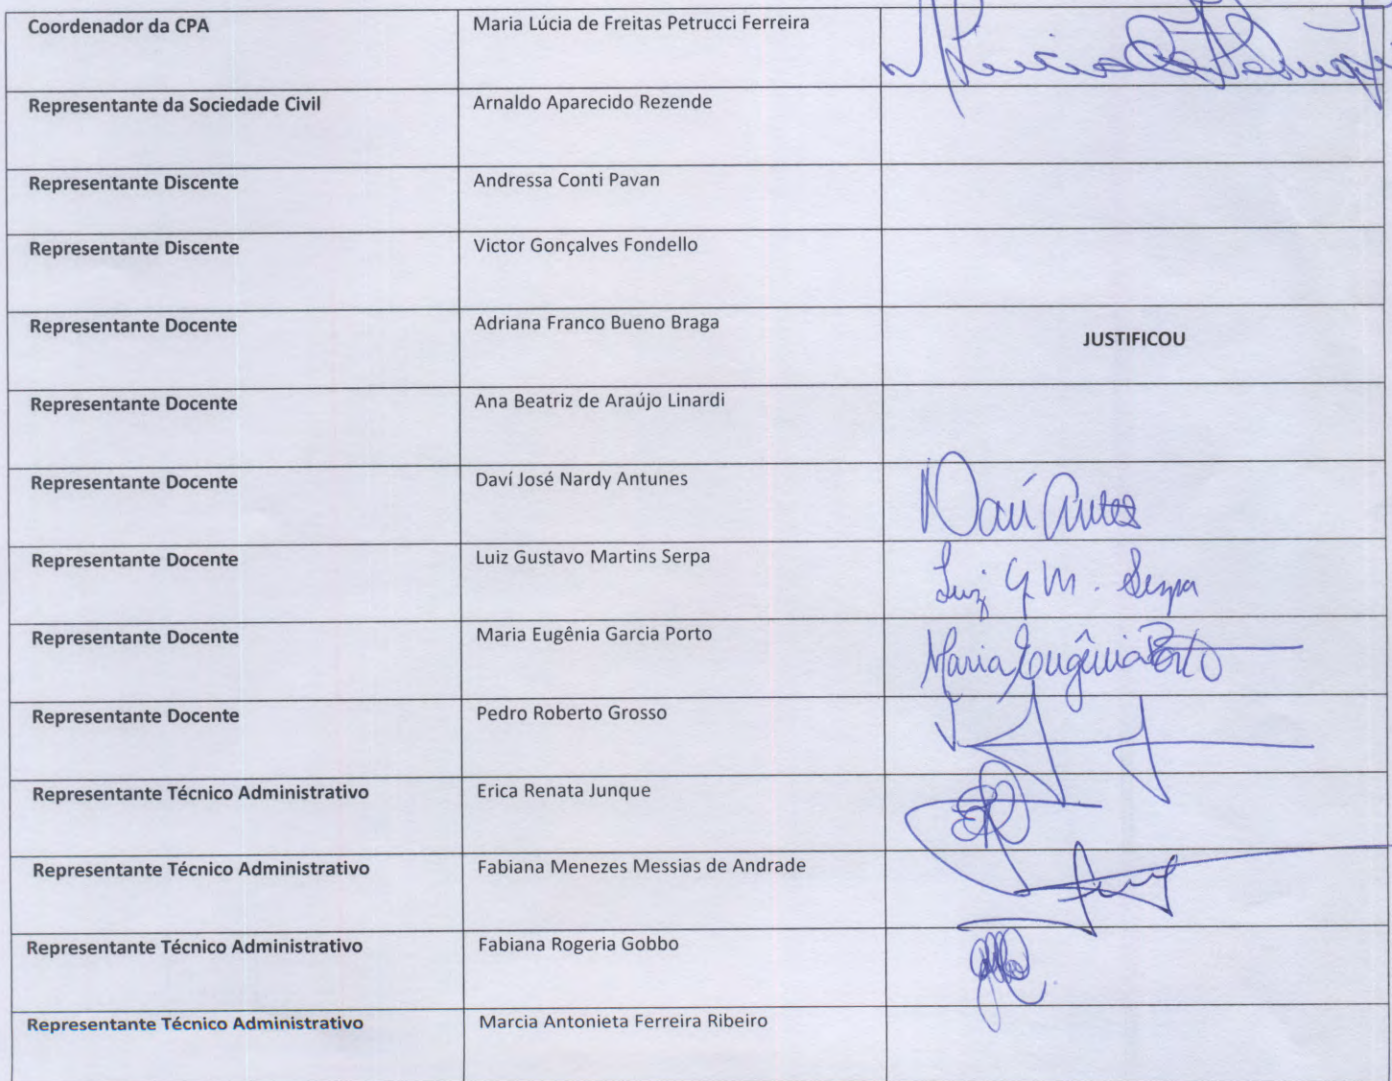 Coordenador da CPA Maria Lúcia de Freitas Petrucci Ferreira
Representante da Sociedade Civil Arnaldo Aparecido Rezende
Representante Discente Andressa Conti Pavan
Representante Discente Victor Gonçalves Fondello
Representante Docente Adriana Franco Bueno Braga JUSTIFICOU
Representante Docente Ana Beatriz de Araújo Linardi
Representante Docente Daví José Nardy Antunes Daví
Representante Docente Luiz Gustavo Martins Serpa Luiz G M. Serpa
Representante Docente Maria Eugênia Garcia Porto Maria Eugênia Porto
Representante Docente Pedro Roberto Grosso
Representante Técnico Administrativo Erica Renata Junque
Representante Técnico Administrativo Fabiana Menezes Messias de Andrade
Representante Técnico Administrativo Fabiana Rogeria Gobbo
Representante Técnico Administrativo Marcia Antonieta Ferreira Ribeiro